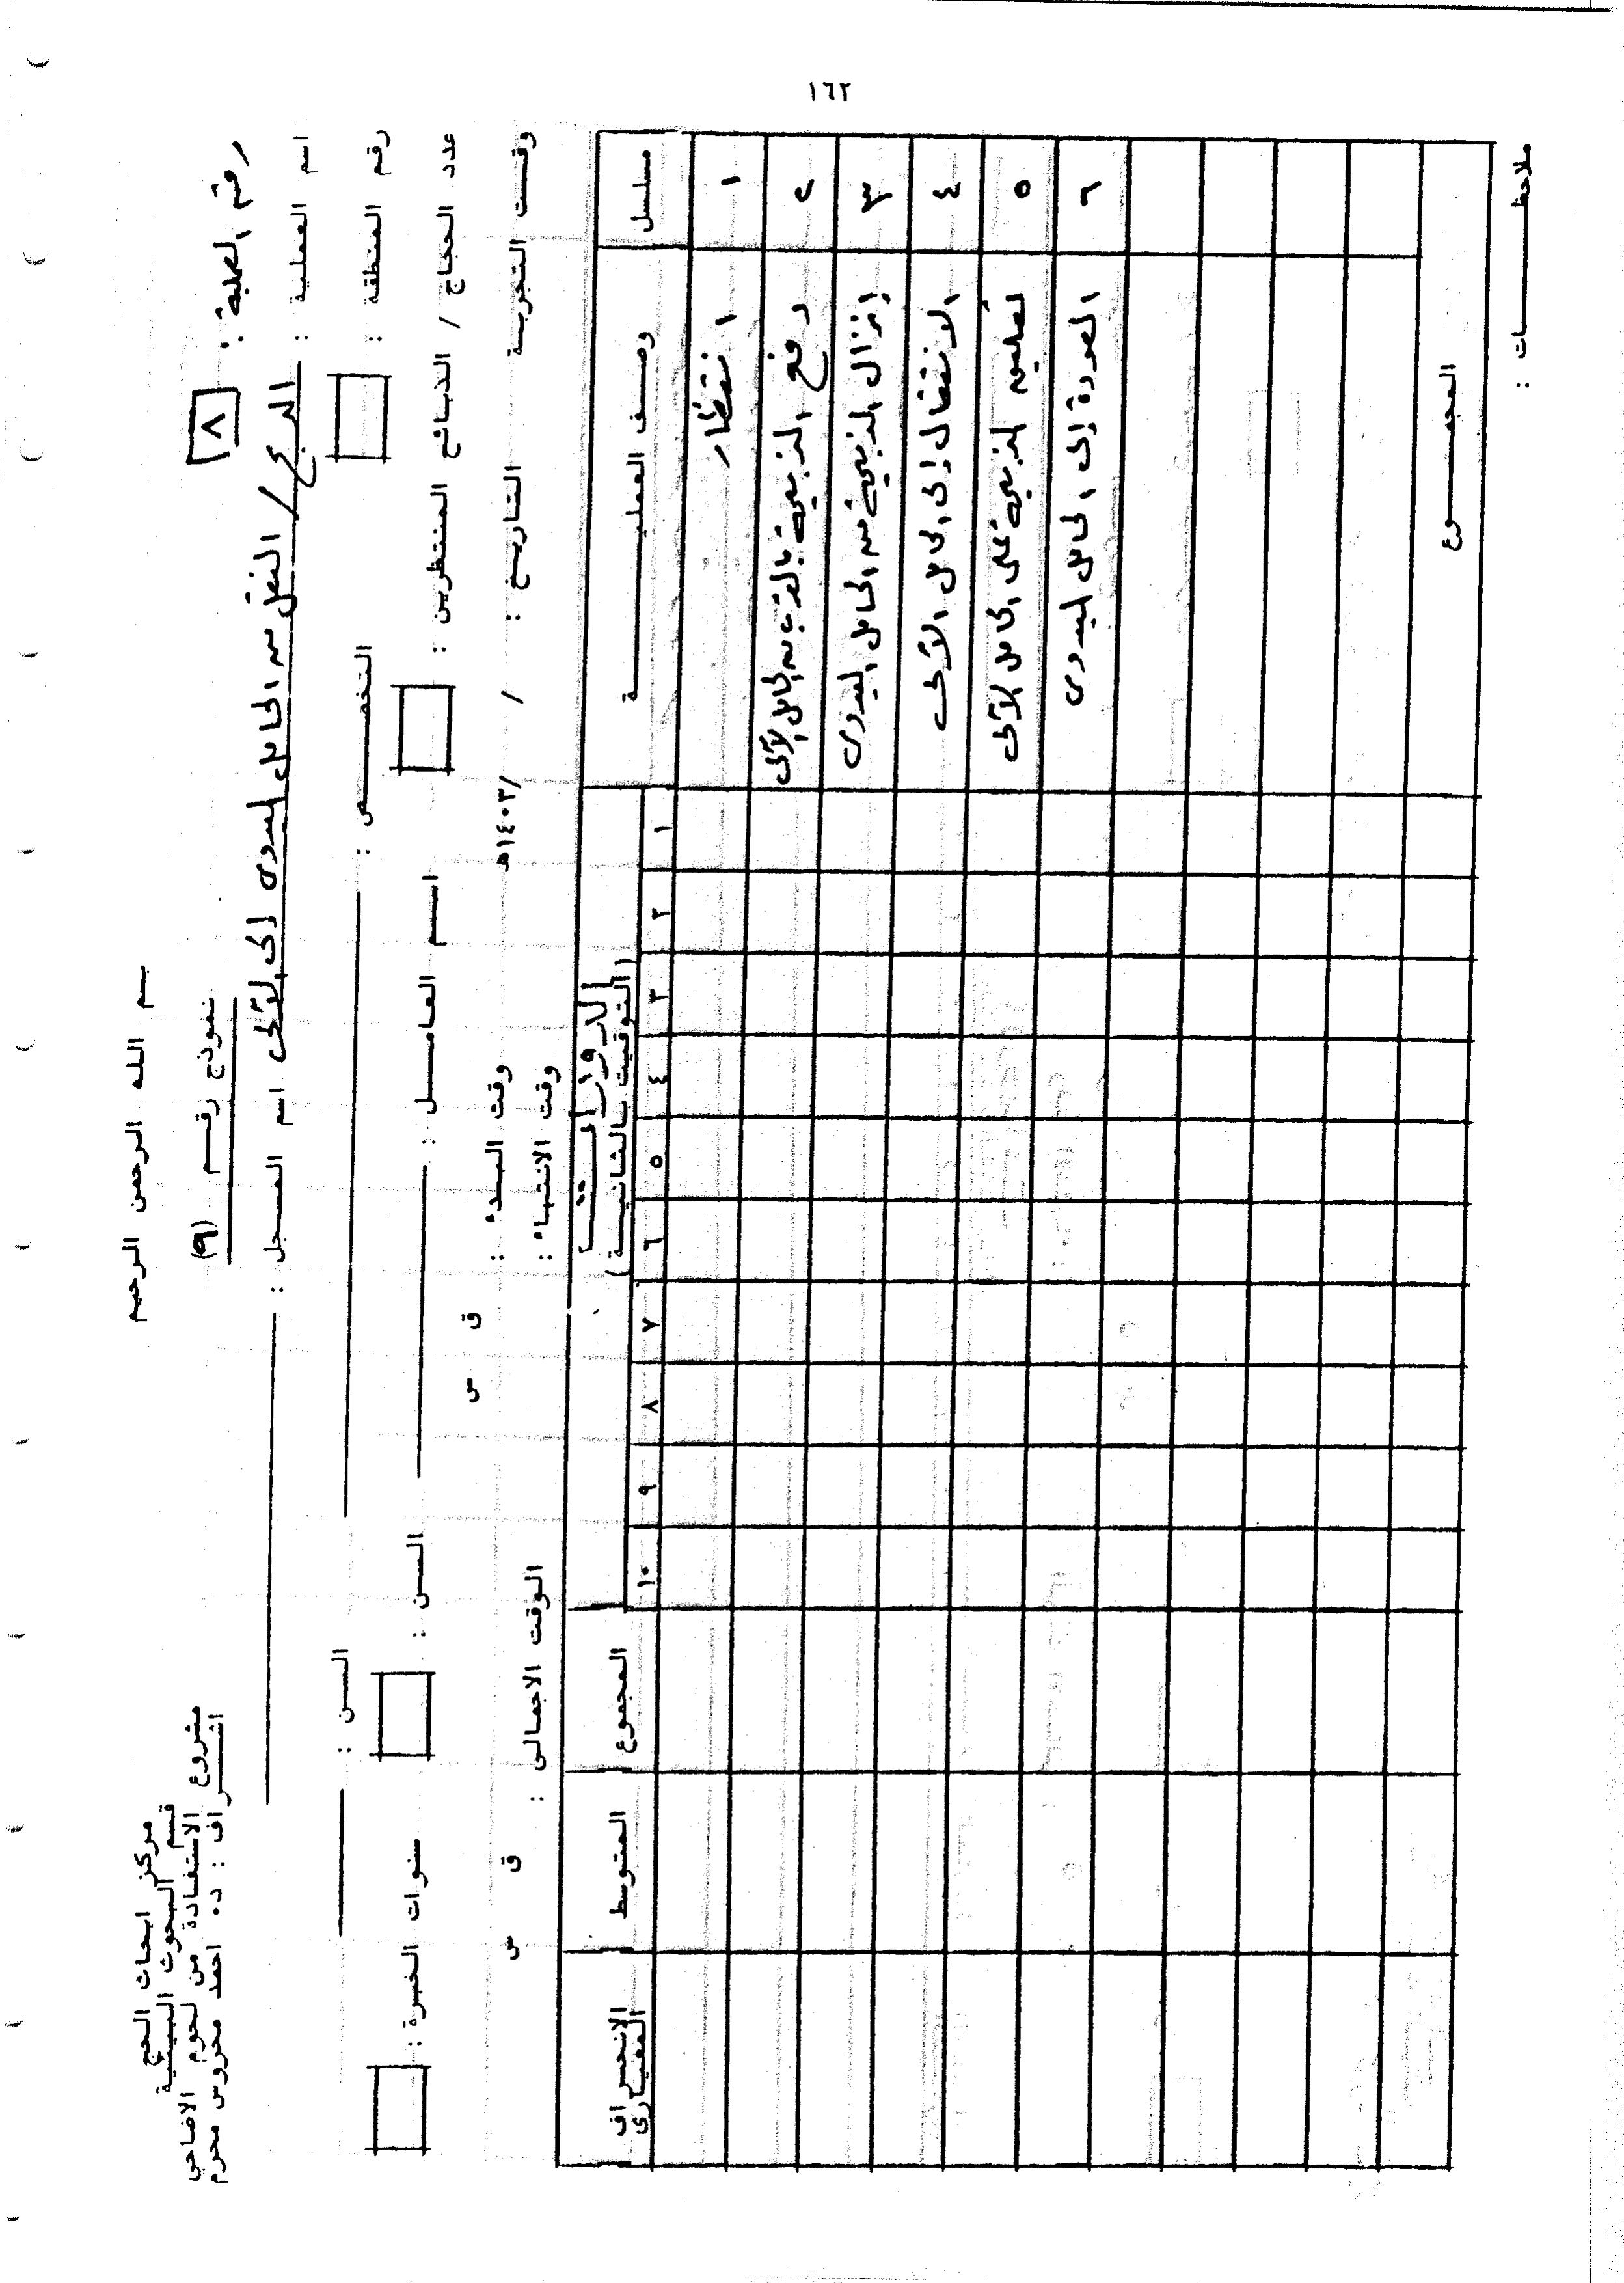 ١٦٢
بسم الله الرحمن الرحيم
مركز ابحاث الحج
قسم البحوث البيئية
مشروع الاستفادة من لحوم الاضاحي
اشــراف : د. احمد محروس محرم
نموذج رقــم (٩)
رقم العملية : ٨
اسم العملية : الذبح / النقل من الحامل اليدوى إلى الآلى اسم المسـجل :
رقم المنطقة : التخصــــــص : السـن :
عدد الحجاج / الذبـائح المنتظرين : اســم العامــل : السـن : سنوات الخبرة :
وقـت التجربـة التاريـخ : / /١٤٠٣هـ
وقت البـدء : ق س
وقت الانتهاء :
الوقت الاجمالى : ق س
مسلسل وصــف العمليــــــــة الدورات (التوقيت بـالثانيـــة) المجموع المتوسط الانحراف المعيـارى
١ ٢ ٣ ٤ ٥ ٦ ٧ ٨ ٩ ١٠
١ انتظار
٢ دفع الذبيحة بالقرب من الحامل الآلى
٣ إنزال الذبيحة من الحامل اليدوى
٤ الانتقال إلى الحامل الآلى
٥ تعليق الذبيحة على الحامل الآلى
٦ العودة إلى الحامل اليدوى
المجمــــوع
ملاحظـــــــات :